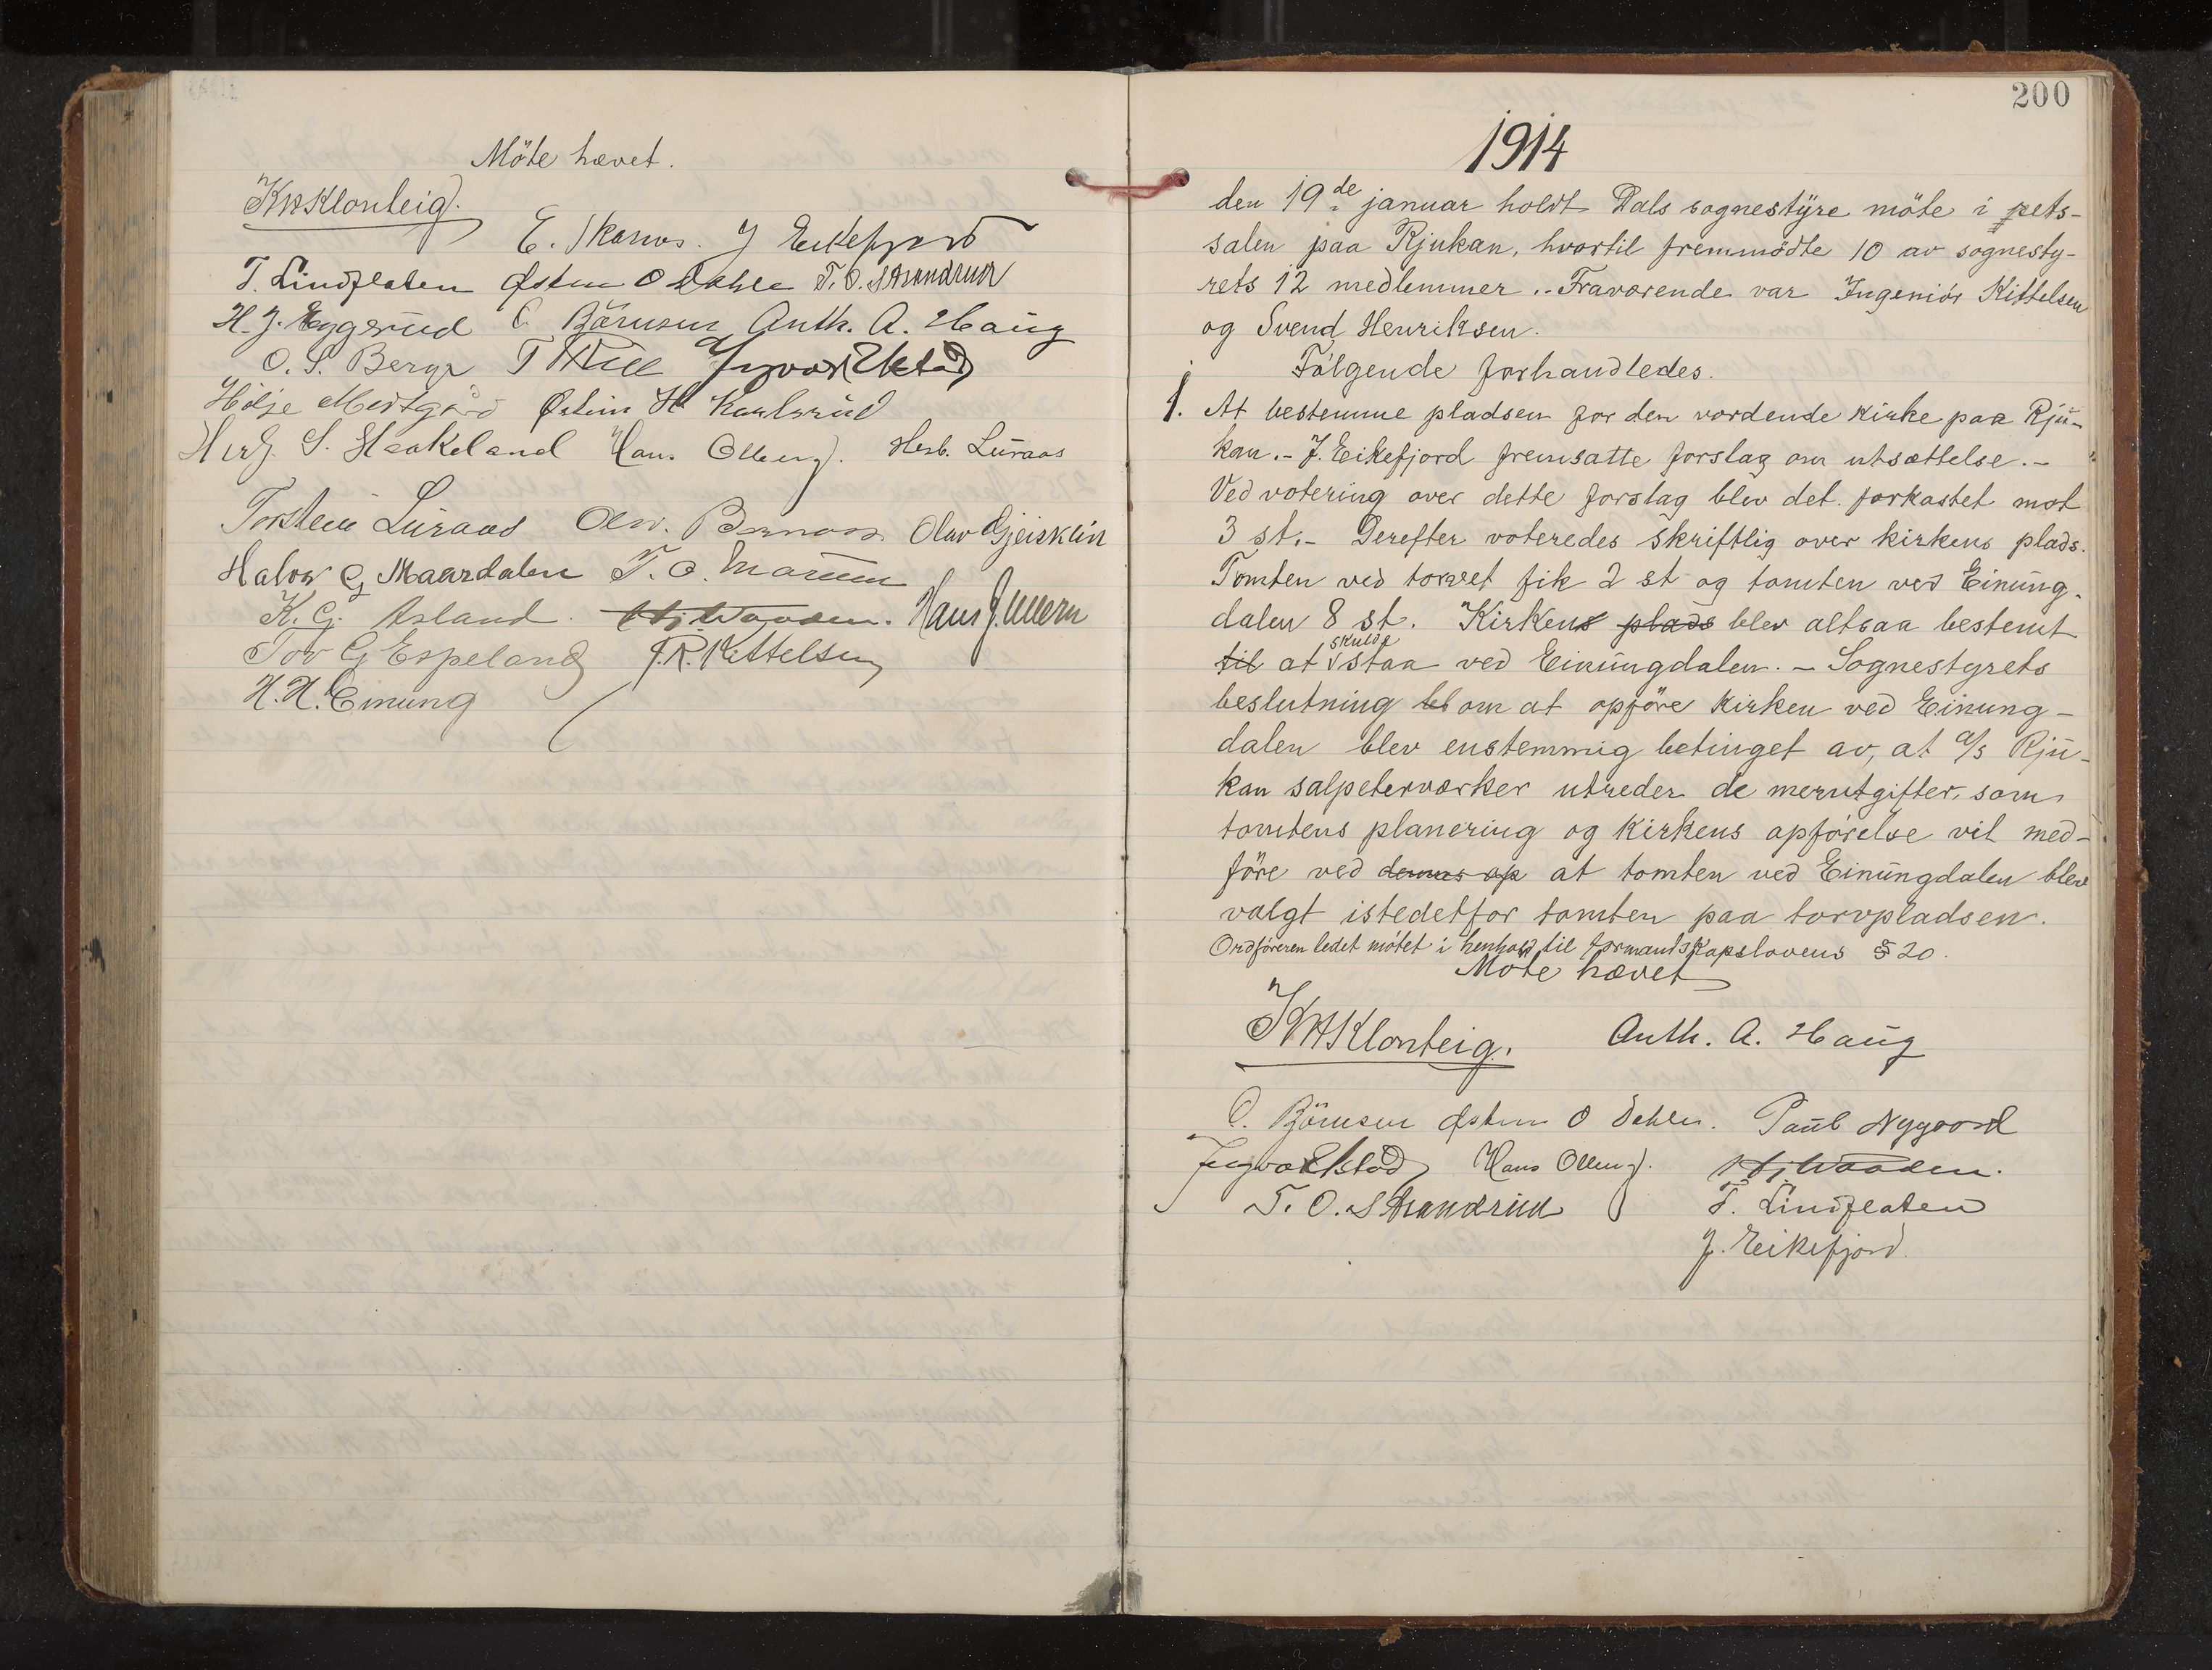 Möte hævet.
KKKlonteig.
E. Skarnes. J Eikefjord
T. Lindflaten Østen O Dahle T. O. Strandrud
H. J. Eggerud O. Börnsen Anth. A. Haug
O. S. Berge T Ingvar Ekstad
Hölje Midtgård Östein H. Karlsrud
Herj. S. Haakeland Hans Olberg. Herb. Luraas
Torstein Luraas Olav. Olav Gjeisklin
Halvor G Maardalen T. O. Marum
K. G. Asland. Hj. Waaden. Hans J. Ullern
Tov G Espeland J. R. Kittelsen
H. H. Einung
200
1914
den 19de januar holdt Dals sognestyre möte i rets-
salen paa Rjukan, hvortil fremmödte 10 av sognesty-
rets 12 medlemmer. - Fraværende var Ingeniör Kittelsen
og Svend Henriksen.
Fölgende forhandledes.
1. At bestemme pladsen for den vordende kirke paa Rju-
kan. - J. Eikefjord fremsatte forslag om utsættelse. -
Ved votering over dette forslag blev det forkastet mot
3 st. - Derefter voteredes skriftlig over kirkens plads.
Tomten ved torvet fik 2 st og tomten ved Einung-
dalen 8 st. Kirkens plads blev altsaa bestemt
til at skulde staa ved Einungdalen. - Sognestyrets
beslutning om at opföre kirken ved Einung-
dalen blev enstemmig betinget av, at a/s Rju-
kan salpeterværker utreder de merutgifter, som
tomtens planering og kirkens opförelse vil med-
före ved dennes op at tomten ved Einungdalen blev
valgt istedetfor tomten paa torvpladsen.
Ordföreren ledet mötet i henhold til formandskapslovens § 20.
Möte hævet
KKKlonteig. Anth. A. Haug
O. Börnsen Østen O Dahle. Paul Nygaard
Ingvar Ekstad Hans Olberg. Hj. Waaden.
T. O. Strandrud T. Lindflaten
J. Eikefjord.